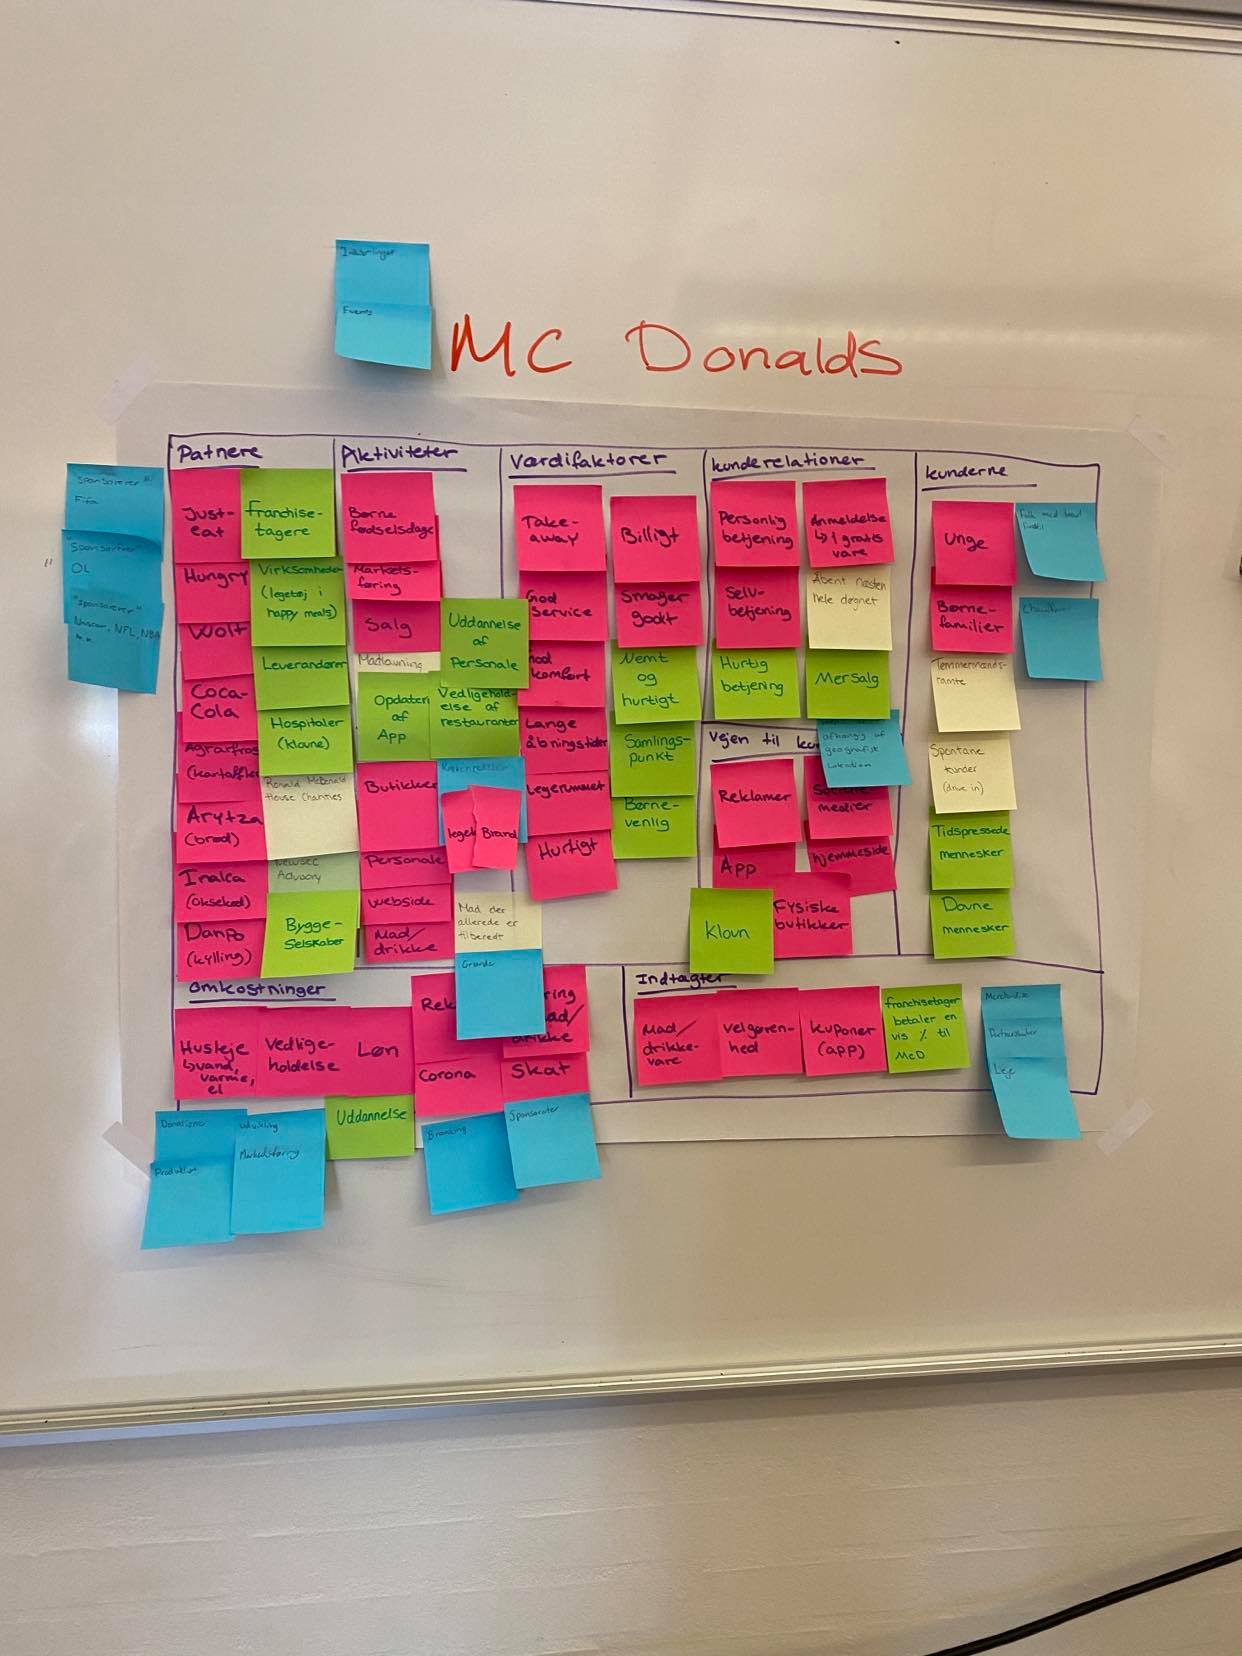 Events
MC Donalds
Patnere
"Sponsorerer"
Fifa
"Sponsorerer"
OL
"Sponsorerer"
Nascar, NFL, NBA
Just-
eat
Hungry
Wolt
Coca-
Cola
(kartofler
Arytza
(brød)
Inalca
(oksekød)
Danpo
(kylling)
franchise-
tagere
Virksomheder
(legetøj i
happy meals)
Leverandører
Hospitaler
(klovne)
Ronald McDonald
House Charities
Advisory
Bygge-
Selskaber
Aktiviteter
Børne
fødselsdage
Markeds-
føring
Salg
Madlavning
Opdatering
af
App
Uddannelse
af
Personale
Vedligehold-
else af
restauranter
Butikker
Brand
Personale
webside
Mad/
drikke
Mad der
allerede er
tilberedt
Grunde
Værdifaktorer
Take-
away
God
service
God
komfort
Lange
åbningstider
Legerummet
Hurtigt
Billigt
Smager
godt
Nemt
og
hurtigt
Samlings-
punkt
Børne-
venlig
kunderelationer
Personlig
betjening
Selv-
betjening
Hurtig
betjening
Anmeldelse
↳ 1 gratis
vare
Åbent næsten
hele døgnet
Mersalg
Vejen til
afhængig af
geografisk
Lokation
Reklamer
Sociale
medier
App
hjemmeside
Klovn
Fysiske
butikker
kunderne
Unge
Børne-
familier
Tømmermænds-
ramte
Spontane
kunder
(drive in)
Tidspressede
mennesker
Dovne
mennesker
Omkostninger
Husleje
↳vand,
varme,
el
Vedlige-
holdelse
Løn
Rek
Corona
drikke
Skat
Uddannelse
Donationer
Produktion
Udvikling
Markedsføring
Branding
Sponsorater
Indtægter
Mad/
drikke-
vare
velgøren-
hed
kuponer
(app)
franchisetager
betaler en
vis % til
McD
Merchandise
Leje